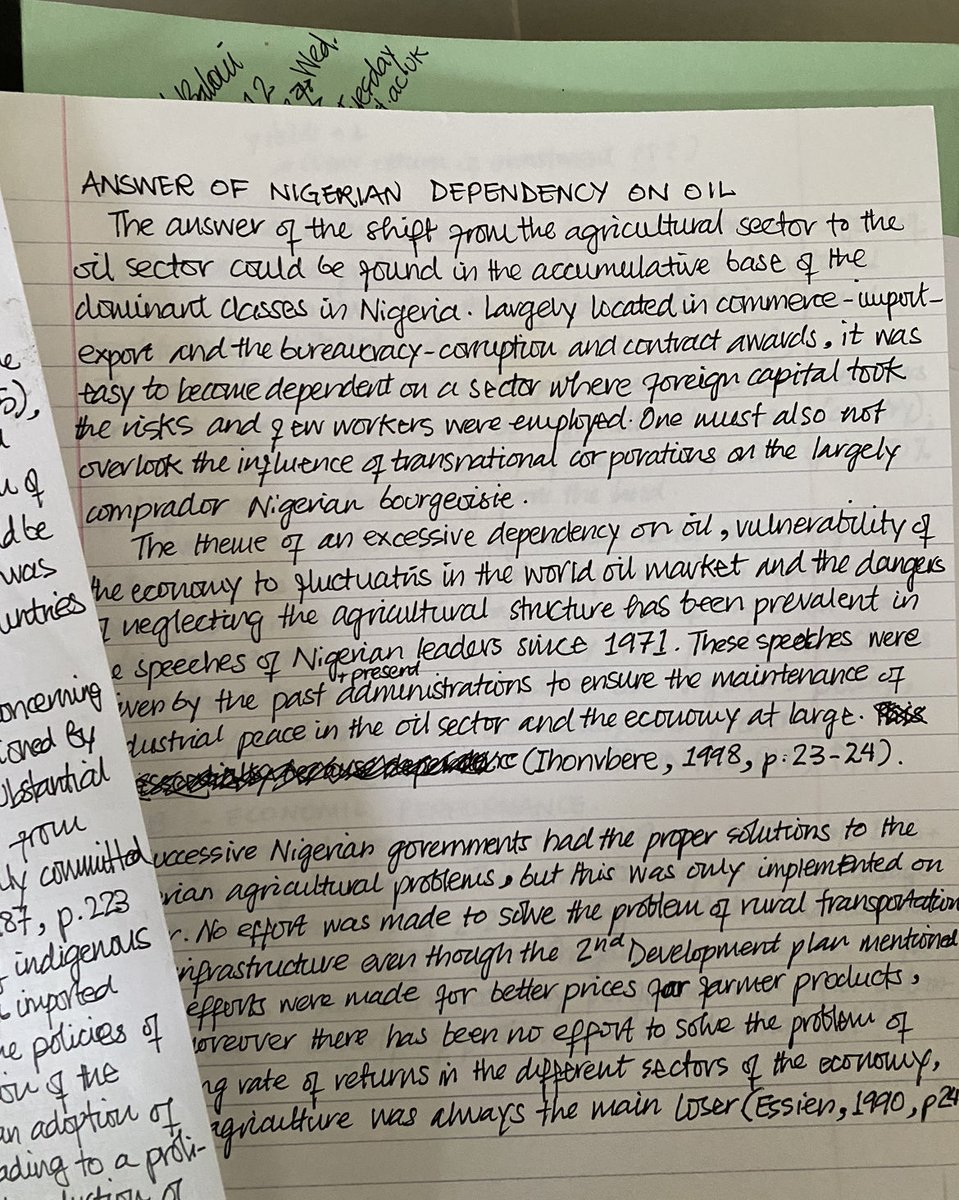 Balaii
12
Wed.
Tuesday
.ac.uk
ANSWER OF NIGERIAN DEPENDENCY ON OIL
The answer of the shift from the agricultural sector to the
oil sector could be found in the accumulative base of the
dominant classes in Nigeria. Largely located in commerce-import-
export and the bureaucracy-corruption and contract awards, it was
easy to become dependent on a sector where foreign capital took
the risks and few workers were employed. One must also not
overlook the influence of transnational corporations on the largely
comprador Nigerian bourgeoisie.
The theme of an excessive dependency on oil, vulnerability of
the economy to fluctuatns in the world oil market and the dangers
neglecting the agricultural structure has been prevalent in
e speeches of Nigerian leaders since 1971. These speeches were
iven by the past + present administrations to ensure the maintenance of
dustrial peace in the oil sector and the economy at large. This
(Ihonvbere, 1998, p:23-24).
uccessive Nigerian governments had the proper solutions to the
rian agricultural problems, but this was only implemented on
r. No effort was made to solve the problem of rural transportation
nfrastructure even though the 2nd Development plan mentioned
efforts were made for better prices for farmer products,
oreover there has been no effort to solve the problem of
ng rate of returns in the different sectors of the economy,
agriculture was always the main loser (Essien, 1990, p24
e
5),
u of
d be
was
untries
oncerning
ioned by
ubstantial
from
ly committed
87, p.223
indigenous
imported
e policies of
ion of the
an adoption of
ading to a proli-
duction of